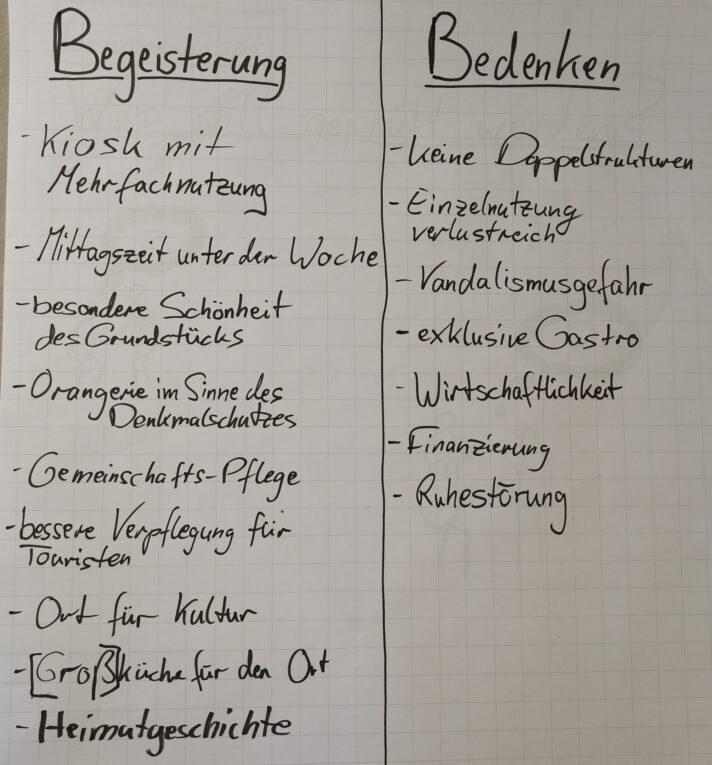 Begeisterung
- Kiosk mit
Mehrfachnutzung
- Mittagszeit unter der Woche
- besondere Schönheit
des Grundstücks
- Orangerie im Sinne des
Denkmalschutzes
- Gemeinschafts-Pflege
- bessere Verpflegung für
Touristen
- Ort für Kultur
- [Groß]küche für den Ort
- Heimatgeschichte
Bedenken
- keine Doppelstrukturen
- Einzelnutzung
verlustreich
- Vandalismusgefahr
- exklusive Gastro
- Wirtschaftlichkeit
- Finanzierung
- Ruhestörung